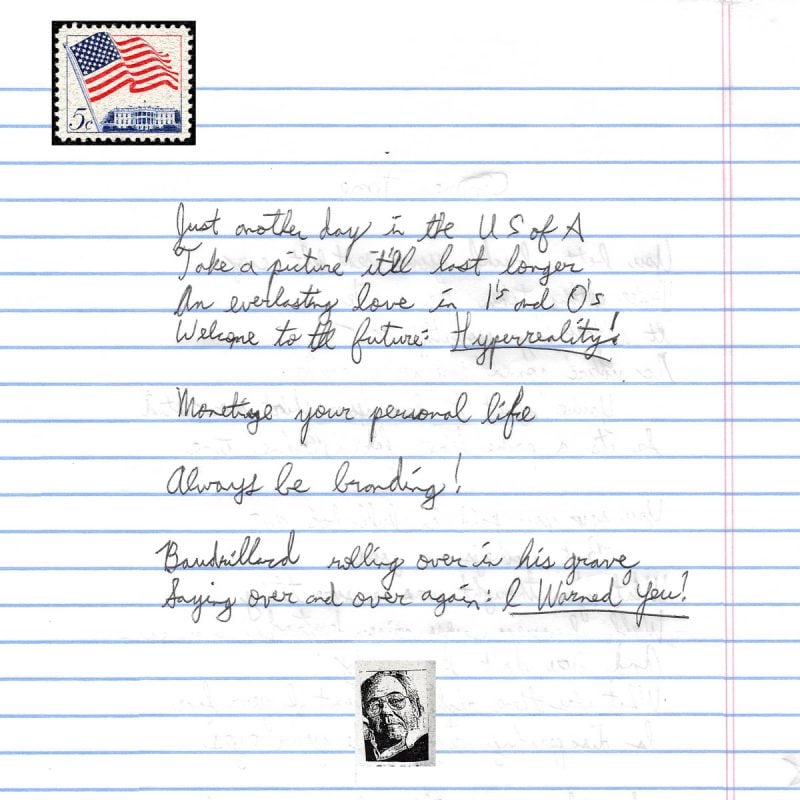 5c
Just another day in the U S of A
Take a picture it'll last longer
An everlasting love in 1's and 0's
Welcome to the future: Hyperreality!
Monetize your personal life
Always be branding!
Baudrillard rolling over in his grave,
Saying over and over again: I Warned You!